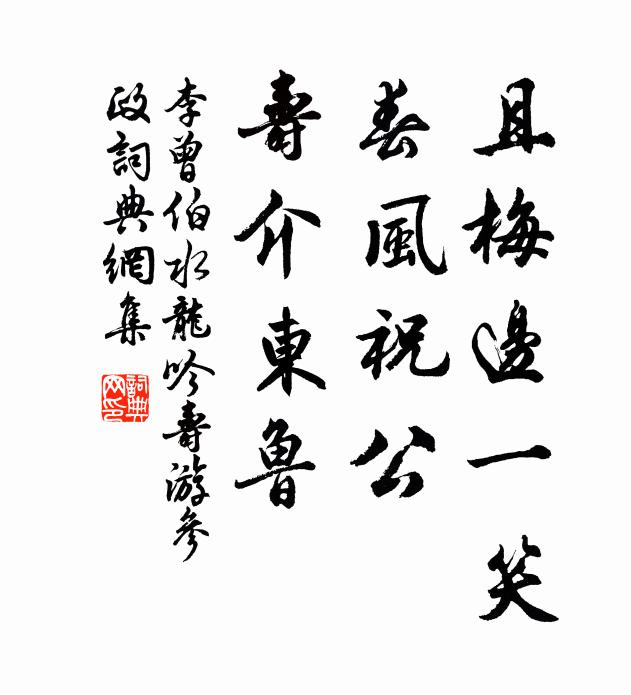 且梅邊一笑
春風祝公
壽介東魯
李曾伯水龍吟壽游參
政詞典網集
詞典
网印